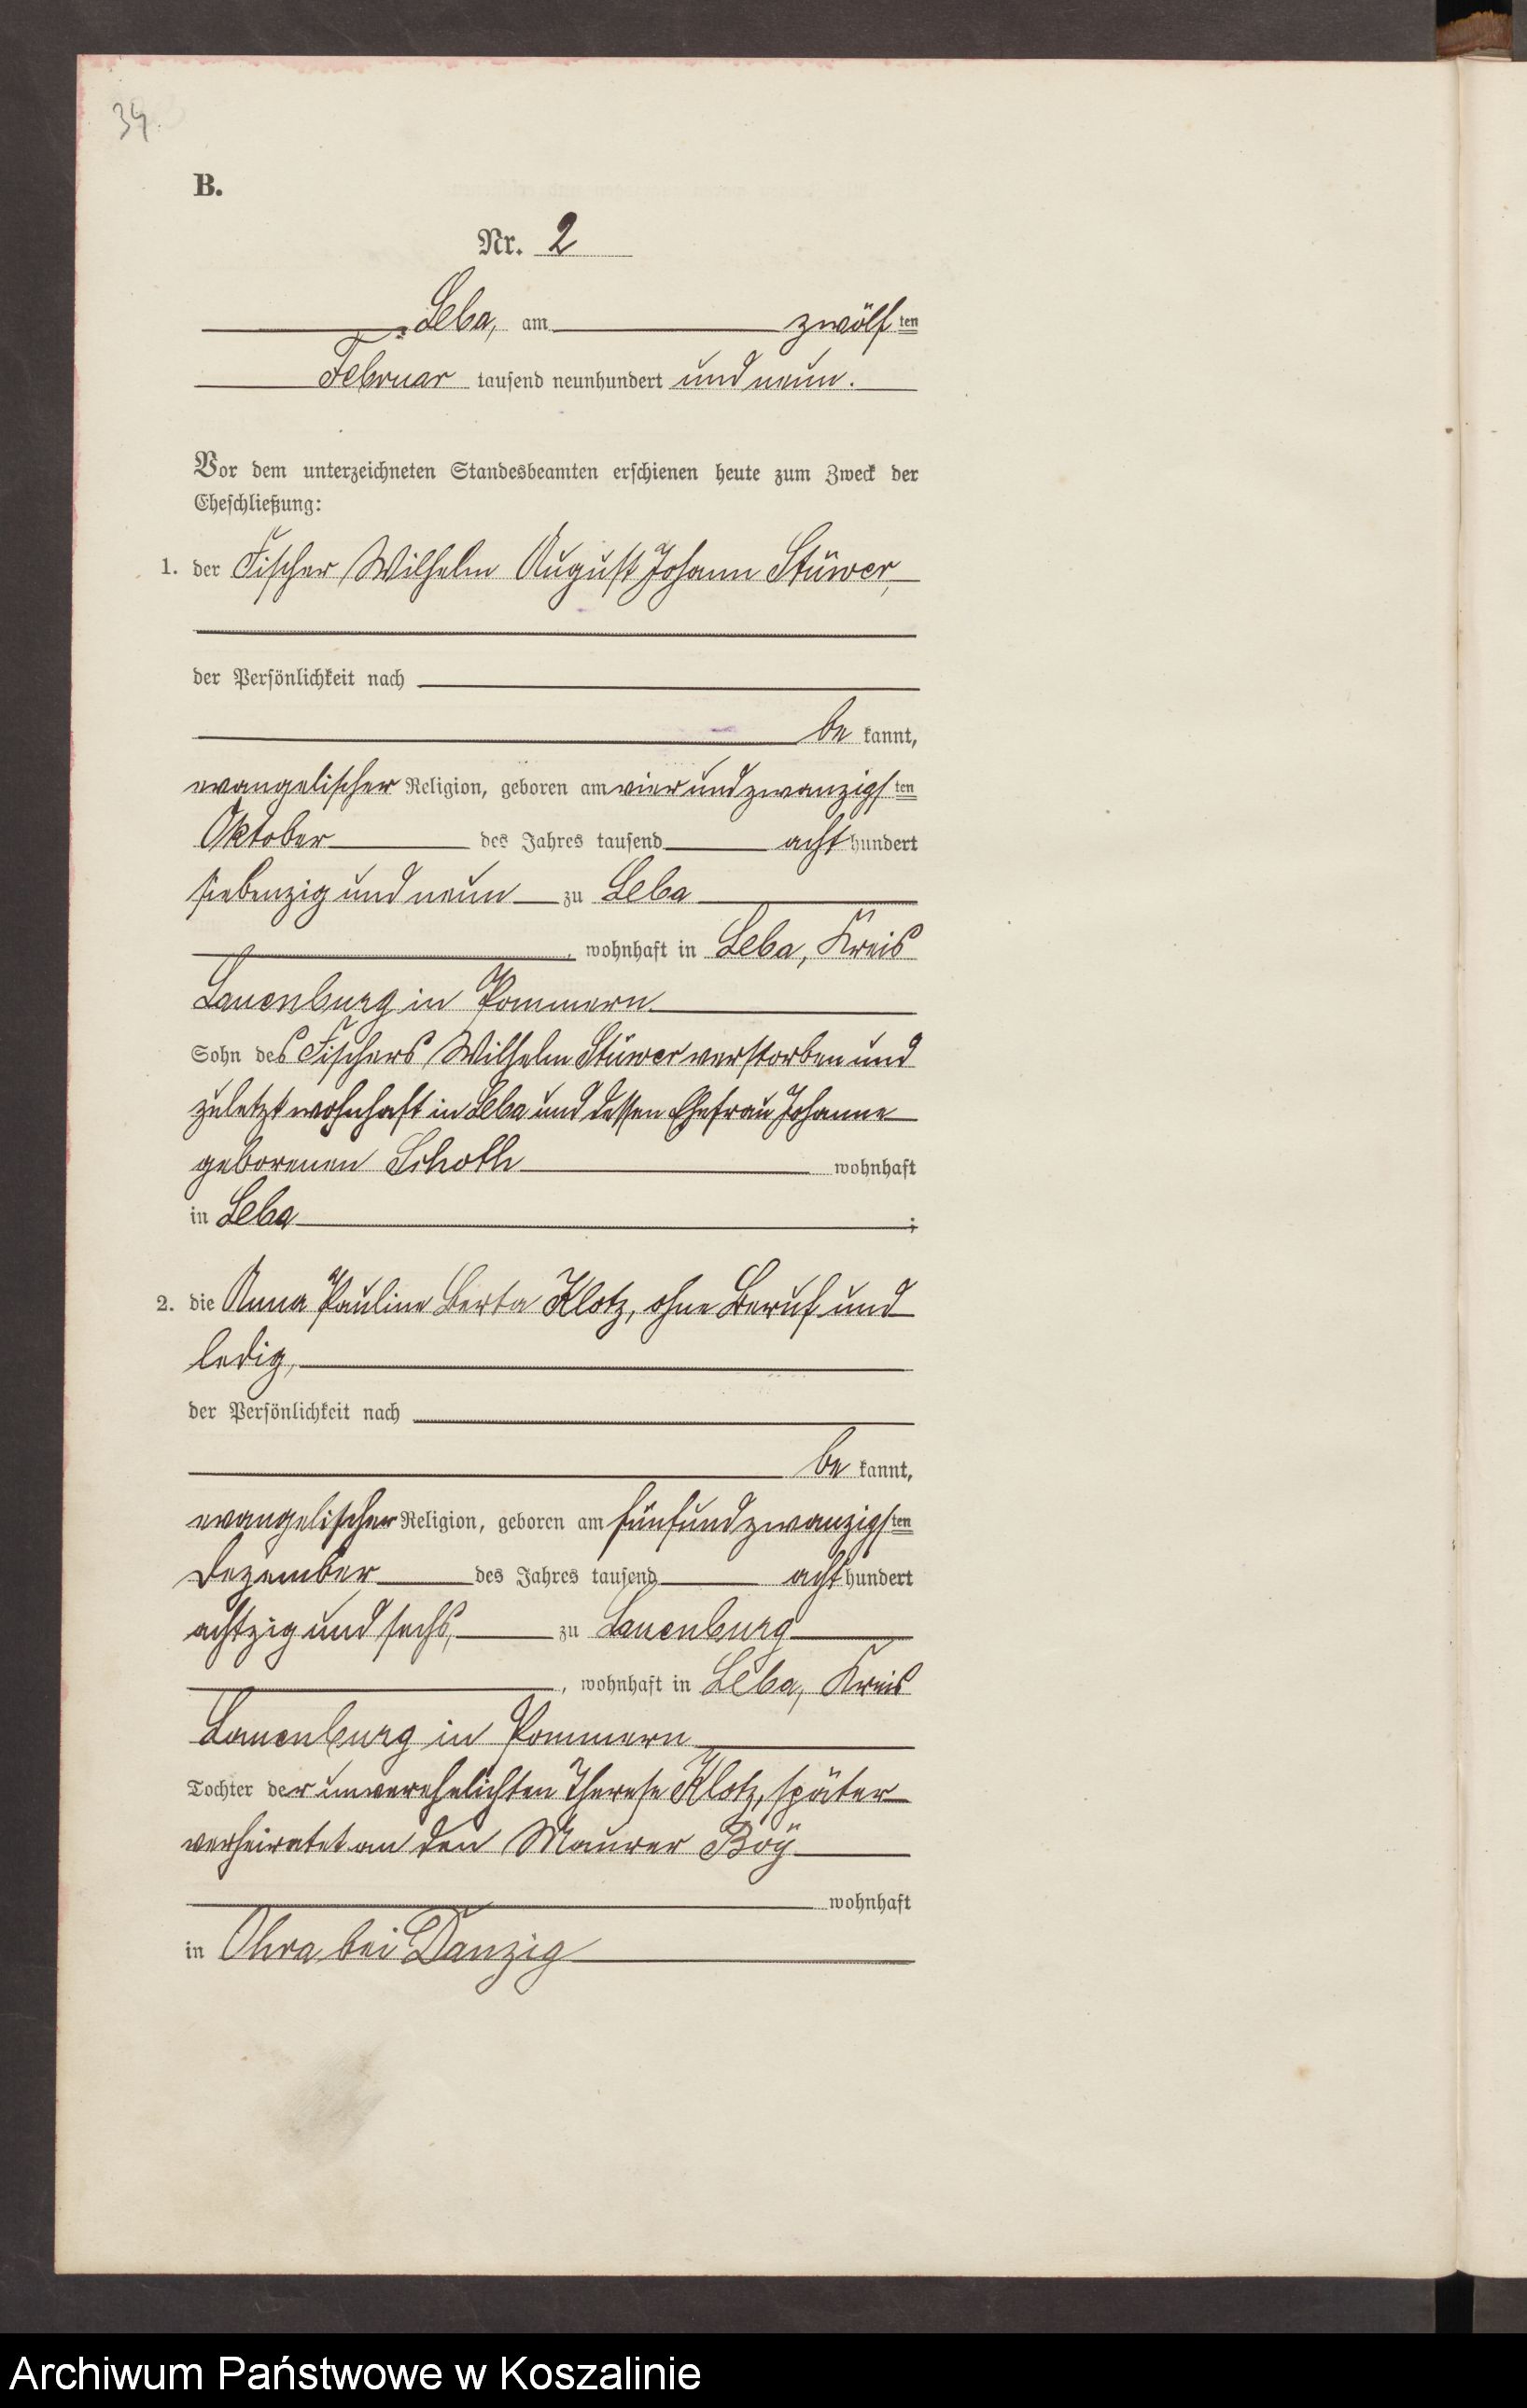 34.
B.
Nr. 2
Leba, am zwölf ten
Februar tausend neunhundert und neun.
Vor dem unterzeichneten Standesbeamten erschienen heute zum Zweck der
Eheschließung:
1. der Fischer Wilhelm August Johann Stüwer,
der Persönlichkeit nach
be kannt,
evangelischer Religion, geboren am vierundzwanzigs ten
Oktober des Jahres tausend acht hundert
siebenzig und neun zu Leba
, wohnhaft in Leba, Kreis
Lauenburg in Pommern
Sohn des Fischers Wilhelm Stüwer verstorben und
zuletzt wohnhaft in Leba und dessen Ehefrau Johanne
geborenen Schoth wohnhaft
in Leba ;
2. die Anna Pauline Berta Klotz, ohne Beruf und
ledig,
der Persönlichkeit nach
be kannt,
evangelischer Religion, geboren am fünfundzwanzigs ten
Dezember des Jahres tausend acht hundert
achtzig und sechs, zu Lauenburg
, wohnhaft in Leba, Kreis
Lauenburg in Pommern
Tochter der unverehelichten Therese Klotz, später
verheiratet an den Maurer Boÿ
wohnhaft
in Ohra bei Danzig
Archiwum Państwowe w Koszalinie